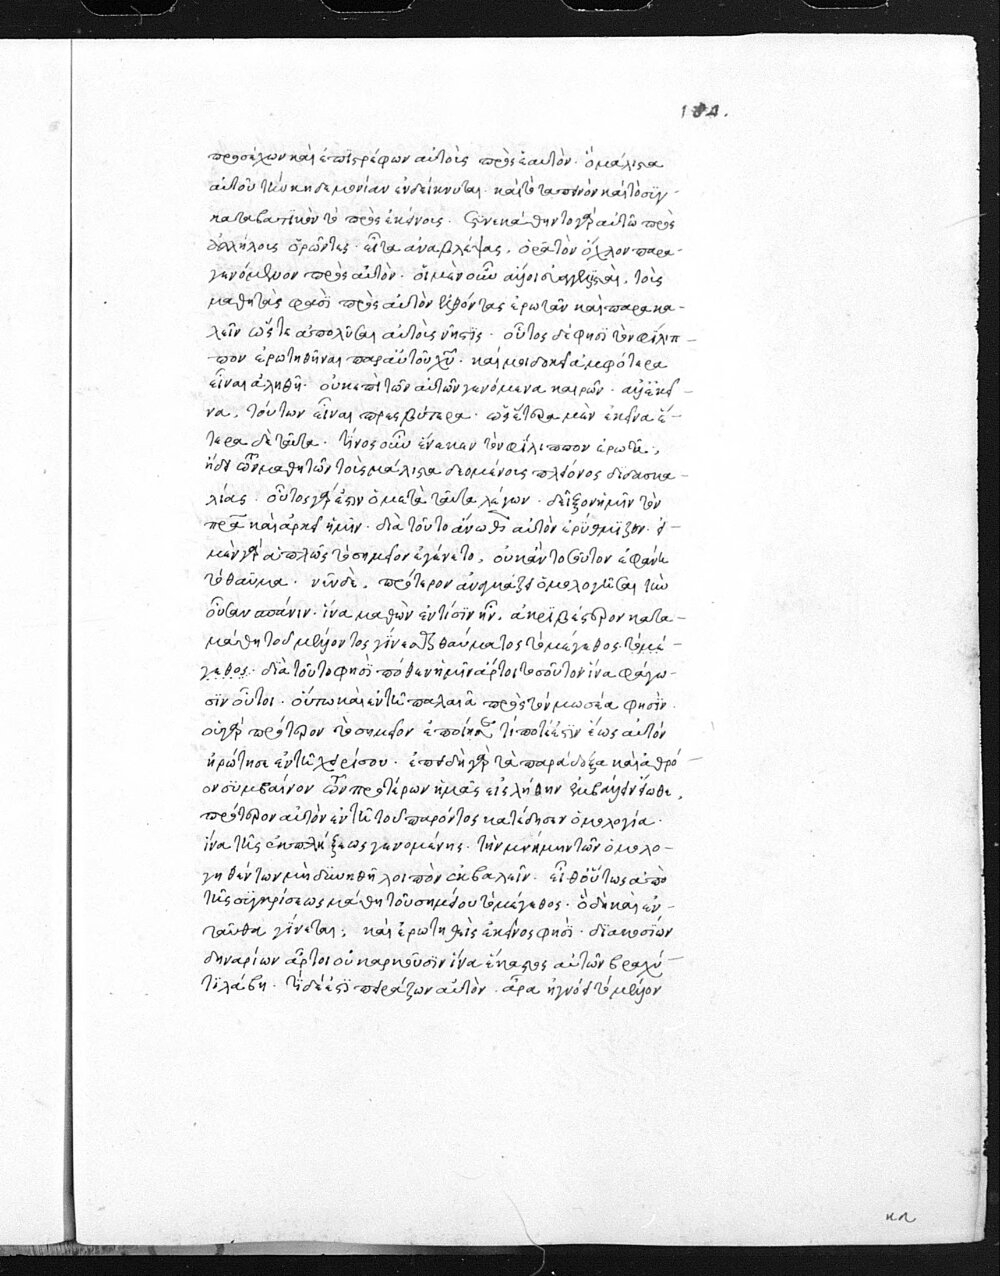 184.
προσέχων καὶ ἐπιστρέφων αὐτοὺς πρὸς ἑαυτόν· ὃ μάλιστα
αὐτοῦ τὴν κηδεμονίαν ἐνδείκνυται· καὶ τὸ ταπεινὸν καὶ τὸ συγ-
καταβατικὸν τὸ πρὸς ἐκείνους. συνεκάθηντο γὰρ αὐτῶ πρὸς
ἀλλήλους ὁρῶντες· εἶτα ἀναβλέψας, ὁρᾶ τὸν ὄχλον παρα-
γενόμενον πρὸς αὐτόν· οἱ μὲν οὖν ἄλλοι εὐαγγελισταὶ, τοὺς
μαθητάς φασι πρὸς αὐτὸν ἐλθόντας ἐρωτᾶν καὶ παρακα-
λεῖν ὥστε ἀπολῦσαι αὐτοὺς νήστις· οὗτος δέ φησι τὸν φίλιπ-
πον ἐρωτηθῆναι παρ' αὐτοῦ χυ· καί μοι δοκεῖ ἀμφότερα
εἶναι ἀληθῆ· οὐκ ἐπὶ τῶν αὐτῶν γενόμενα καιρῶν· ἀλλ' ἐκεῖ-
να, τούτων εἶναι πρεσβύτερα· ὡς ἕτερα μὲν ἐκεῖνα ἕ-
τερα δὲ ταῦτα· τίνος οὖν ἕνεκεν τὸν φίλιππον ἐρωτᾶ;
ἤδει τῶν μαθητῶν τοὺς μάλιστα δεομένους πλείονος διδασκα-
λίας· οὗτος γάρ ἐστιν ὁ μετὰ ταῦτα λέγων· δεῖξον ἡμῖν τὸν
πρα καὶ ἀρκεῖ ἡμῖν· διὰ τοῦτο ἄνωθεν αὐτὸν ἐρύθμιζεν· εἰ
μὲν γὰρ ἁπλῶς τὸ σημεῖον ἐγένετο, οὐκ ἂν τοσοῦτον ἐφάνη
τὸ θαῦμα· νῦν δὲ, πρότερον ἀναγκάζει ὁμολογῆσαι τὴν
οὖσαν σπάνιν· ἵνα μαθὼν ἐν τίσιν ἦν, ἀκριβέστερον κατα-
μάθη τοῦ μέλλοντος γίνεσθαι θαύματος τὸ μέγεθος τὸ μέ-
γεθος· διὰ τοῦτο φησὶ πόθεν ἡμῖν ἄρτοι τοσοῦτοι ἵνα φάγω-
σιν οὗτοι· οὕτω καὶ ἐν τῆ παλαιᾶ πρὸς τὸν μωσέα φησίν·
οὐ γὰρ πρότερον τὸ σημεῖον ἐποίησεν τί ποτέ ἐστιν ἕως αὐτὸν
ἠρώτησε ἐν τῆ χειρί σου· ἐπειδὴ γὰρ τὰ παράδοξα καὶ ἀθρό-
ον συμβαίνον τῶν προτέρων ἡμᾶς εἰς λήθην ἐμβάλλειν εἴωθε,
πρότερον αὐτὸν ἐν τῆ τοῦ παρόντος κατέδησεν ὁμολογία·
ἵνα τῆς ἐκπλήξεως γενομένης· τὴν μνήμην τῶν ὁμολο-
γηθέντων μὴ δυνηθῆ λοιπὸν ἐκβαλεῖν· εἶθ' οὕτως ἀπὸ
τῆς συγκρίσεως μάθη τοῦ σημείου τὸ μέγεθος· ὃ δὴ καὶ ἐν-
ταῦθα γίνεται, καὶ ἐρωτηθεὶς ἐκεῖνος φησὶ· διακοσίων
δηναρίων ἄρτοι οὐκ ἀρκοῦσιν ἵνα ἕκαστος αὐτῶν βραχύ
τι λάβη· τί δέ ἐστι πειράζων αὐτόν· ἆρα ἠγνόει τὸ μέλλον